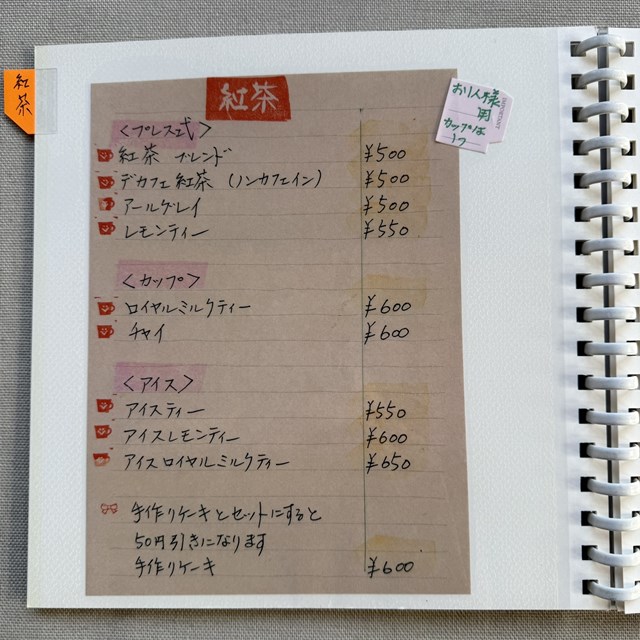 紅茶
紅茶
<プレス式>
紅茶 ブレンド ¥500
デカフェ紅茶 (ノンカフェイン) ¥500
アールグレイ ¥500
レモンティー ¥550
<カップ>
ロイヤルミルクティー ¥600
チャイ ¥600
<アイス>
アイスティー ¥550
アイスレモンティー ¥600
アイスロイヤルミルクティー ¥650
手作りケーキとセットにすると
50円引きになります
手作りケーキ ¥600
お1人様
用
カップは
1つ
IMPORTANT